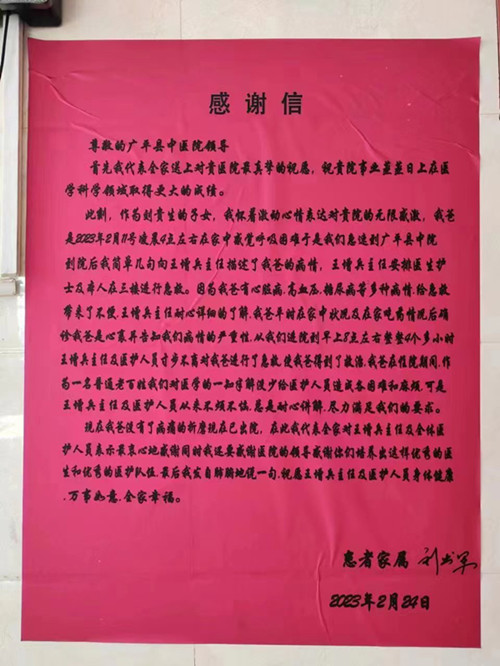 感谢信
尊敬的广平县中医院领导
首先我代表全家送上对贵医院最真挚的祝愿，祝贵院事业蒸蒸日上在医
学科学领域取得更大的成绩。
此刻，作为刘贵生的子女，我怀着激动心情表达对贵院的无限感激，我爸
是2023年2月11号凌晨4点左右在家中感觉呼吸困难于是我们急速到广平县中院
到院后我简单几句向王增兵主任描述了我爸的病情，王增兵主任安排医生护
士及本人在三楼进行急救。因为我爸有心脏病，高血压，糖尿病等多种病情，给急救
带来了不便，王增兵主任耐心详细的了解，我爸平时在家中状况及在家吃药情况后确
诊我爸是心衰并告知我们病情的严重性，从我们进院到早上8点左右整整4个多小时
王增兵主任及医护人员寸步不离对我爸进行了急救，使我爸得到了救治，我爸在住院期间，作
为一名普通老百姓我们对医学的一知半解没少给医护人员造成各困难和麻烦，可是
王增兵主任及医护人员从来不烦不恼，总是耐心讲解，尽力满足我们的要求。
现在我爸没有了病痛的折磨现在已出院，在此我代表全家对王增兵主任及全体医
护人员表示最衷心地感谢同时我还要感谢医院的领导感谢你们培养出这样优秀的医
生和优秀的医护队伍，最后我发自肺腑地说一句，祝愿王增兵主任及医护人员身体健康
，万事如意，全家幸福。
患者家属 刘书军
2023年2月24日